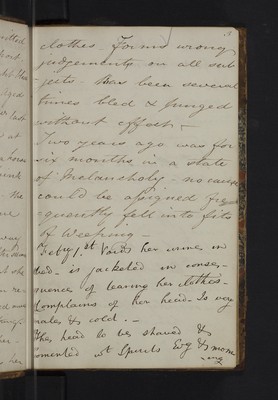 clothes. Forms wrong
judgements on all sub
jects. Has been several
times bled & purged
without effect —
Two years ago was for
six months in a state
of Melancholy - no cause
could be assigned fre
quently fell into fits
of Weeping —
Feby 1st Voids her urine in
bed. is jacketed in conse-
quence of tearing her clothes.
Complains of her head. Is very
& cold. —
The head to be shaved &
omented wt Spirits Evg & morn
ing